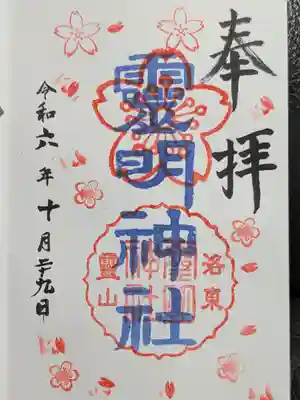 奉拝
靈明神社
洛東
靈山
令和六年十月二十九日